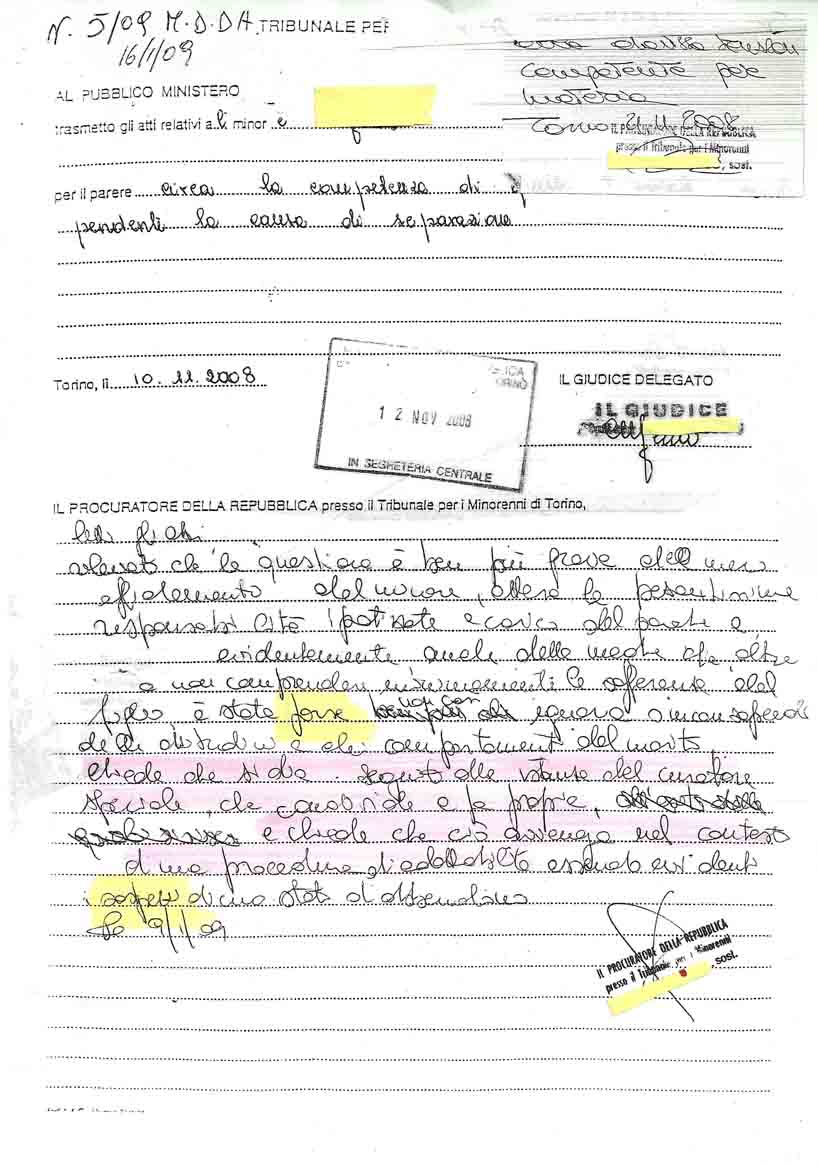 N. 5/09 M.D.DA TRIBUNALE PER
16/1/09
competente per
materia
Torino 2008
IL PROCURATORE DELLA REPUBBLICA
presso il Tribunale per i Minorenni
, sost.
AL PUBBLICO MINISTERO
trasmetto gli atti relativi al minor e
per il parere circa la competenza di
pendenti la causa di separazione
Torino, lì 10.11.2008
12 NOV 2008
IN SEGRETERIA CENTRALE
IL GIUDICE DELEGATO
IL GIUDICE
IL PROCURATORE DELLA REPUBBLICA presso il Tribunale per i Minorenni di Torino,
letti gli atti
rilevato che la questione è ben più grave del mero
affidamento del minore, attese le pesantissime
responsabilità ipotizzate a carico del padre e
evidentemente anche della madre che oltre
a non comprendere minimamente le sofferenze del
figlio, è stata forse non ben ignara o inconsapevole
delle abitudini e dei comportamenti del marito,
chiede che si dia seguito alle istanze del curatore
speciale, che condivide e fa proprie,
e chiede che ciò avvenga nel contesto
di una procedura di adottabilità essendo evidenti
i sospetti di uno stato d'abbandono
To 9/1/09
IL PROCURATORE DELLA REPUBBLICA
presso il Tribunale per i Minorenni
, sost.